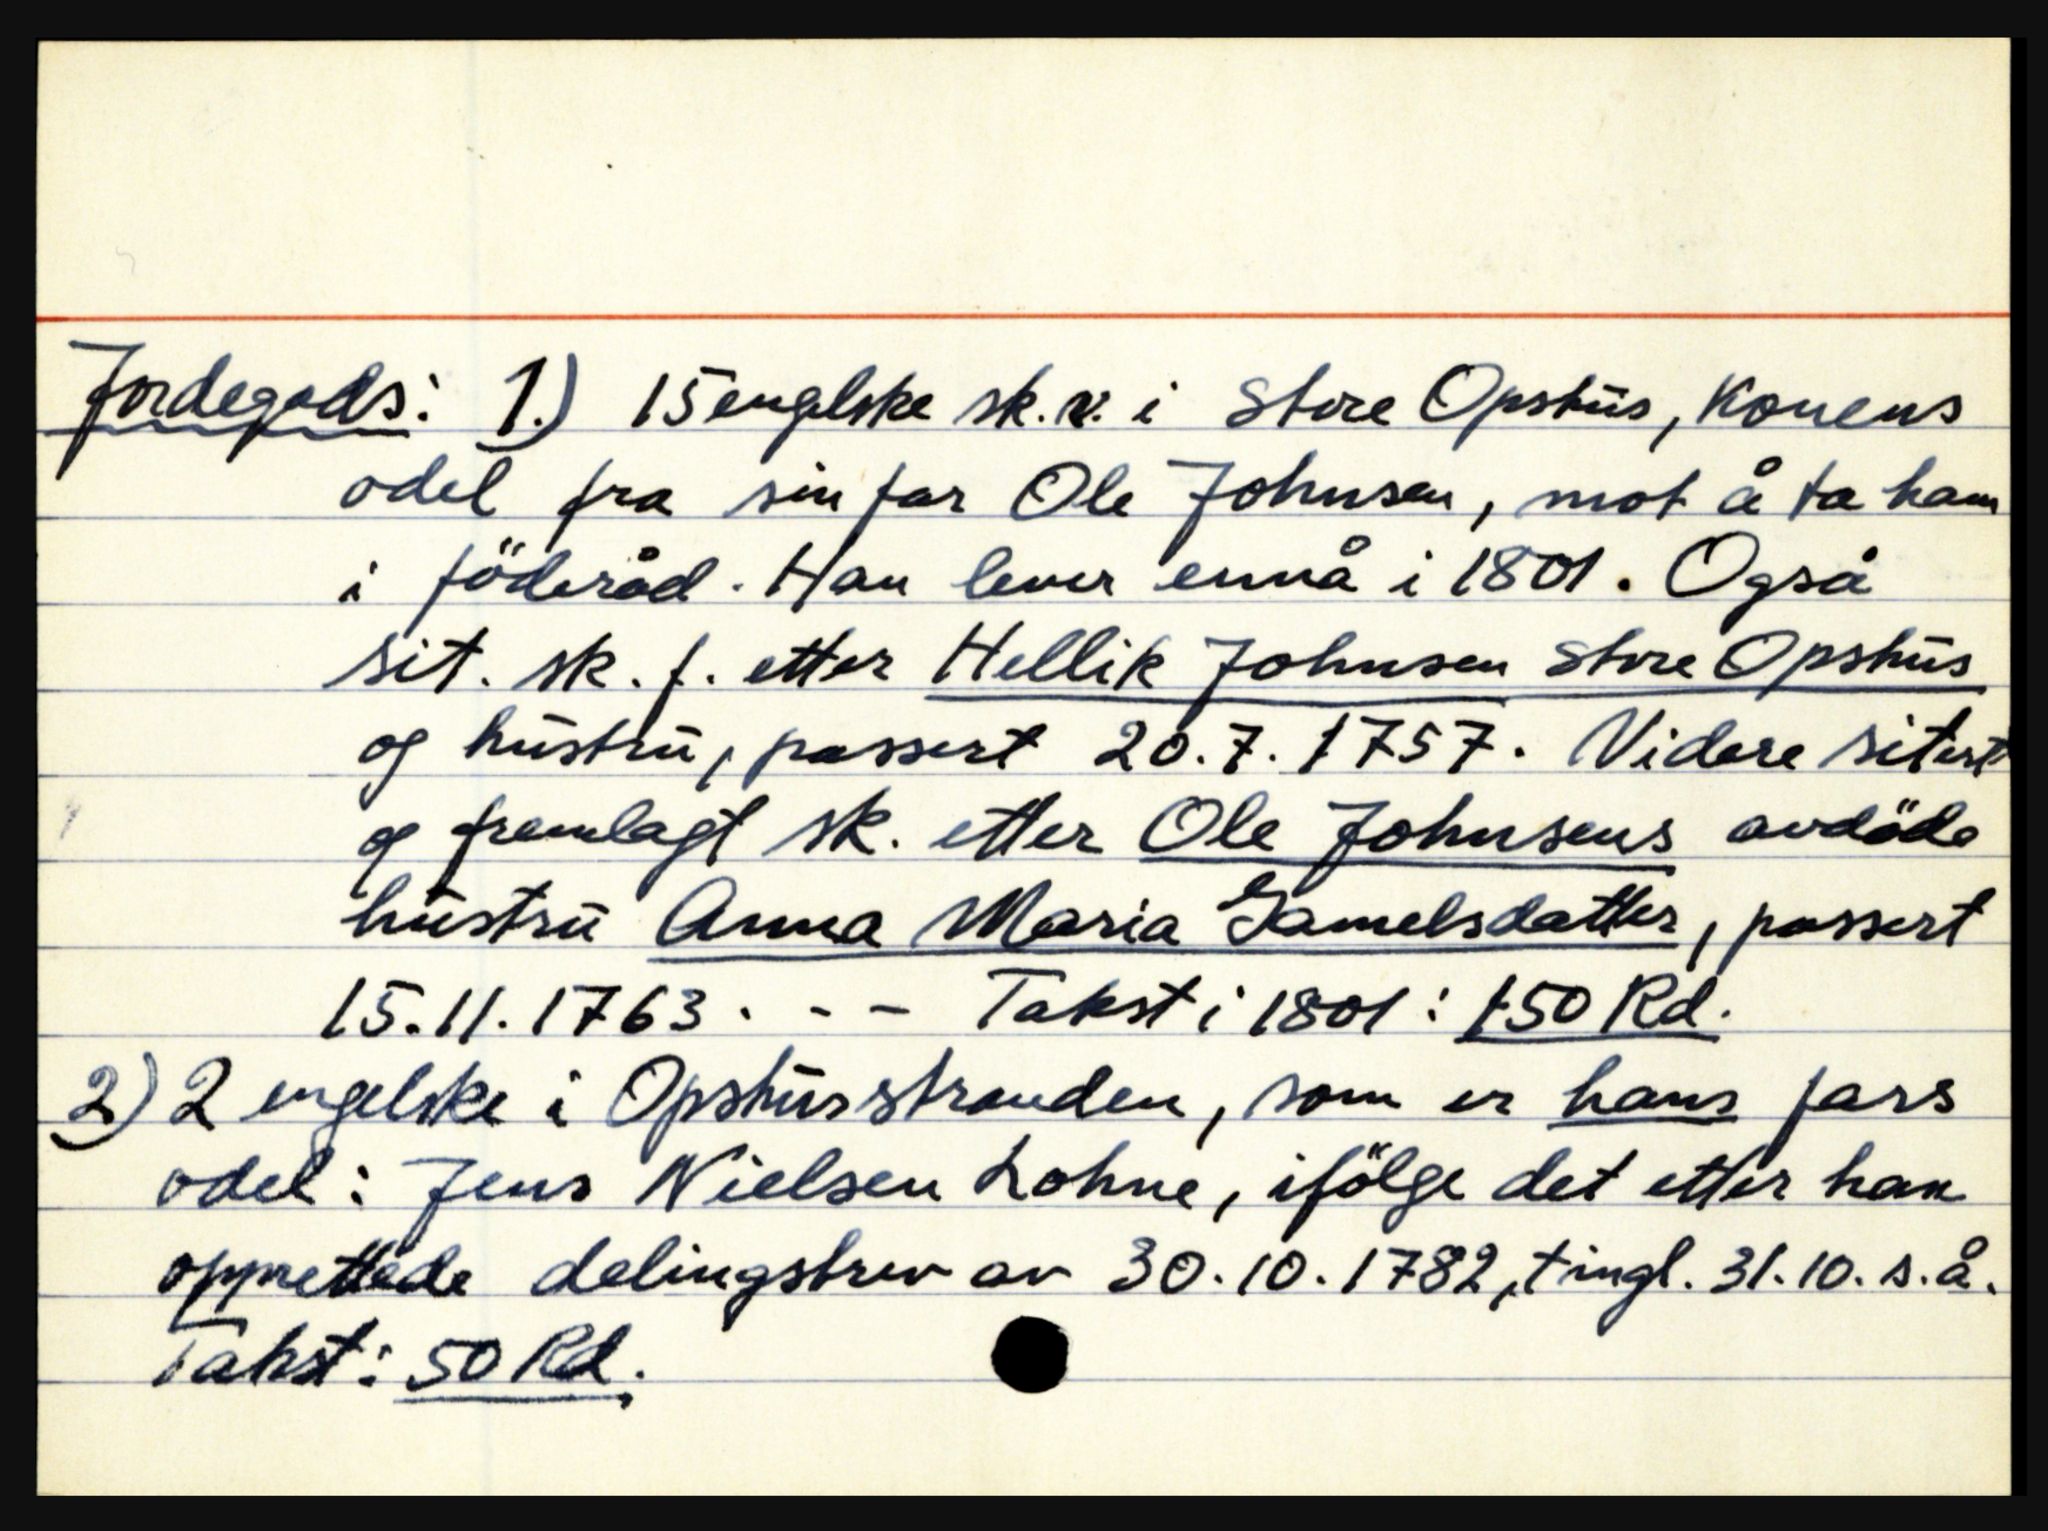 Jordegods: 1.) 15 engelske sk. v. i Store Opshus, Konens
odel fra sin far Ole Johnsen, mot å ta ham
i föderåd. Han lever ennå i 1801. Også
sit. sk. f. etter Hellik Johnsen Store Opshus
og hustru, passert 20.7.1757. Videre sitert
og fremlagt sk. etter Ole Johnsens avdöde
hustru Anna Maria Gamelsdatter, passert
15.11.1763. - - Takst i 1801: 150 Rd.
2) 2 engelske i Opshusstranden, som er hans fars
odel: Jens Nielsen Lohne, ifölge det etter ham
opprettede delingsbrev av 30.10.1782, tingl. 31.10. s.å.
Takst: 50 Rd.